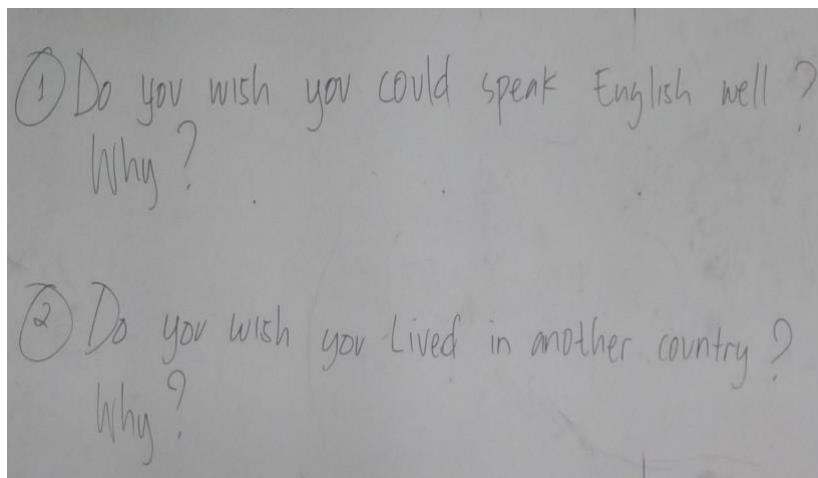 ① Do you wish you could speak English well ?
Why ?
② Do you wish you Lived in another country ?
Why ?